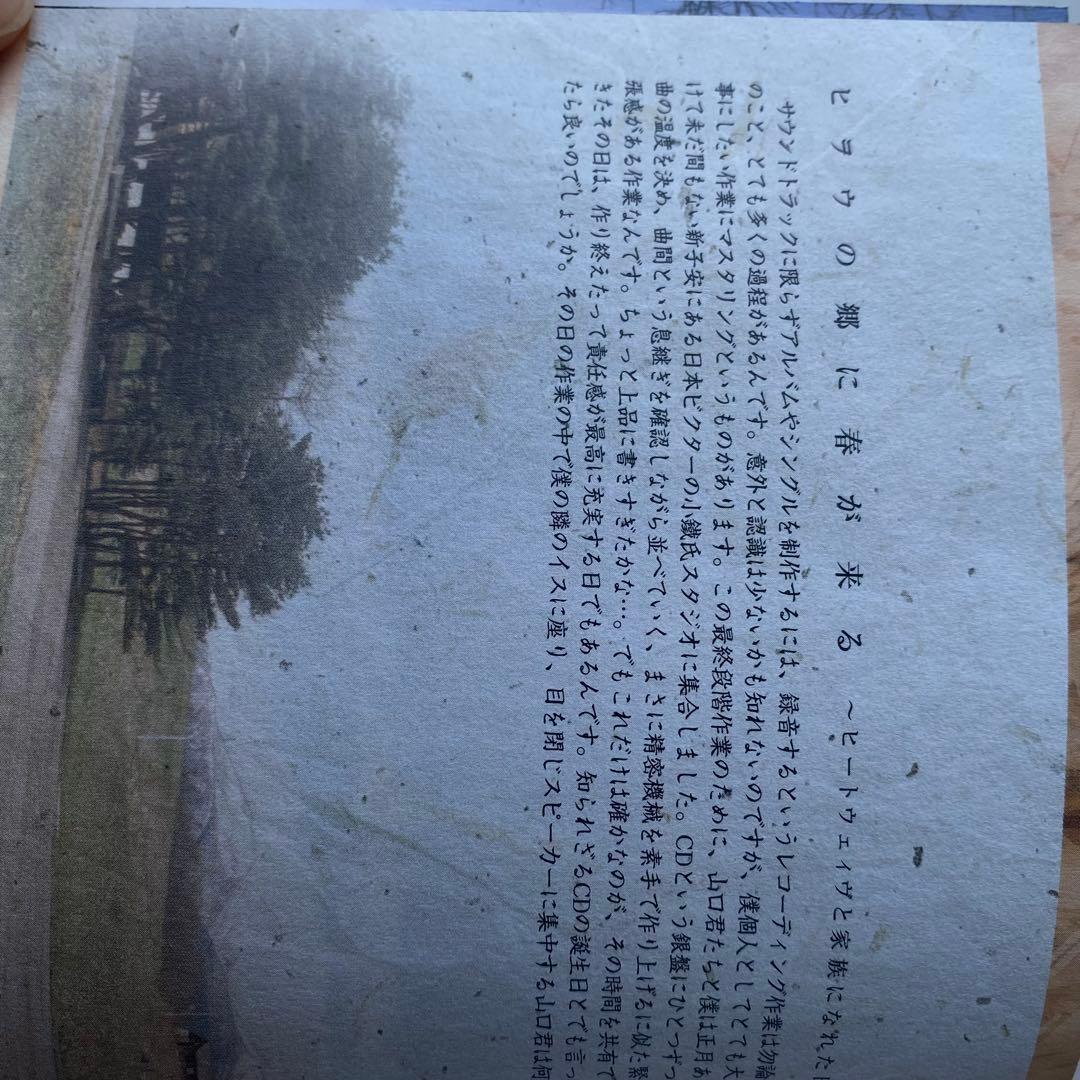 ヒヲウの郷に春が来る ～ヒートウェイヴと家族になれた
サウンドトラックに限らずアルバムやシングルを制作するには、録音するというレコーディング作業は勿論
のこと、とても多くの過程があるんです。意外と認識は少ないかも知れないのですが、僕個人としてとても大
事にしたい作業にマスタリングというものがあります。この最終段階作業のために、山口君たちと僕は正月あ
けて未だ間もない新子安にある日本ビクターの小鐵氏スタジオに集合しました。CDという銀盤にひとつずつ
曲の温度を決め、曲間という息継ぎを確認しながら並べていく、まさに精密機械を素手で作り上げるに似た緊
張感がある作業なんです。ちょっと上品に書きすぎたかな…。でもこれだけは確かなのが、その時間を共有で
きたその日は、作り終えたって責任感が最高に充実する日でもあるんです。知られざるCDの誕生日とでも言っ
たら良いのでしょうか。その日の作業の中で僕の隣のイスに座り、目を閉じスピーカーに集中する山口君は何